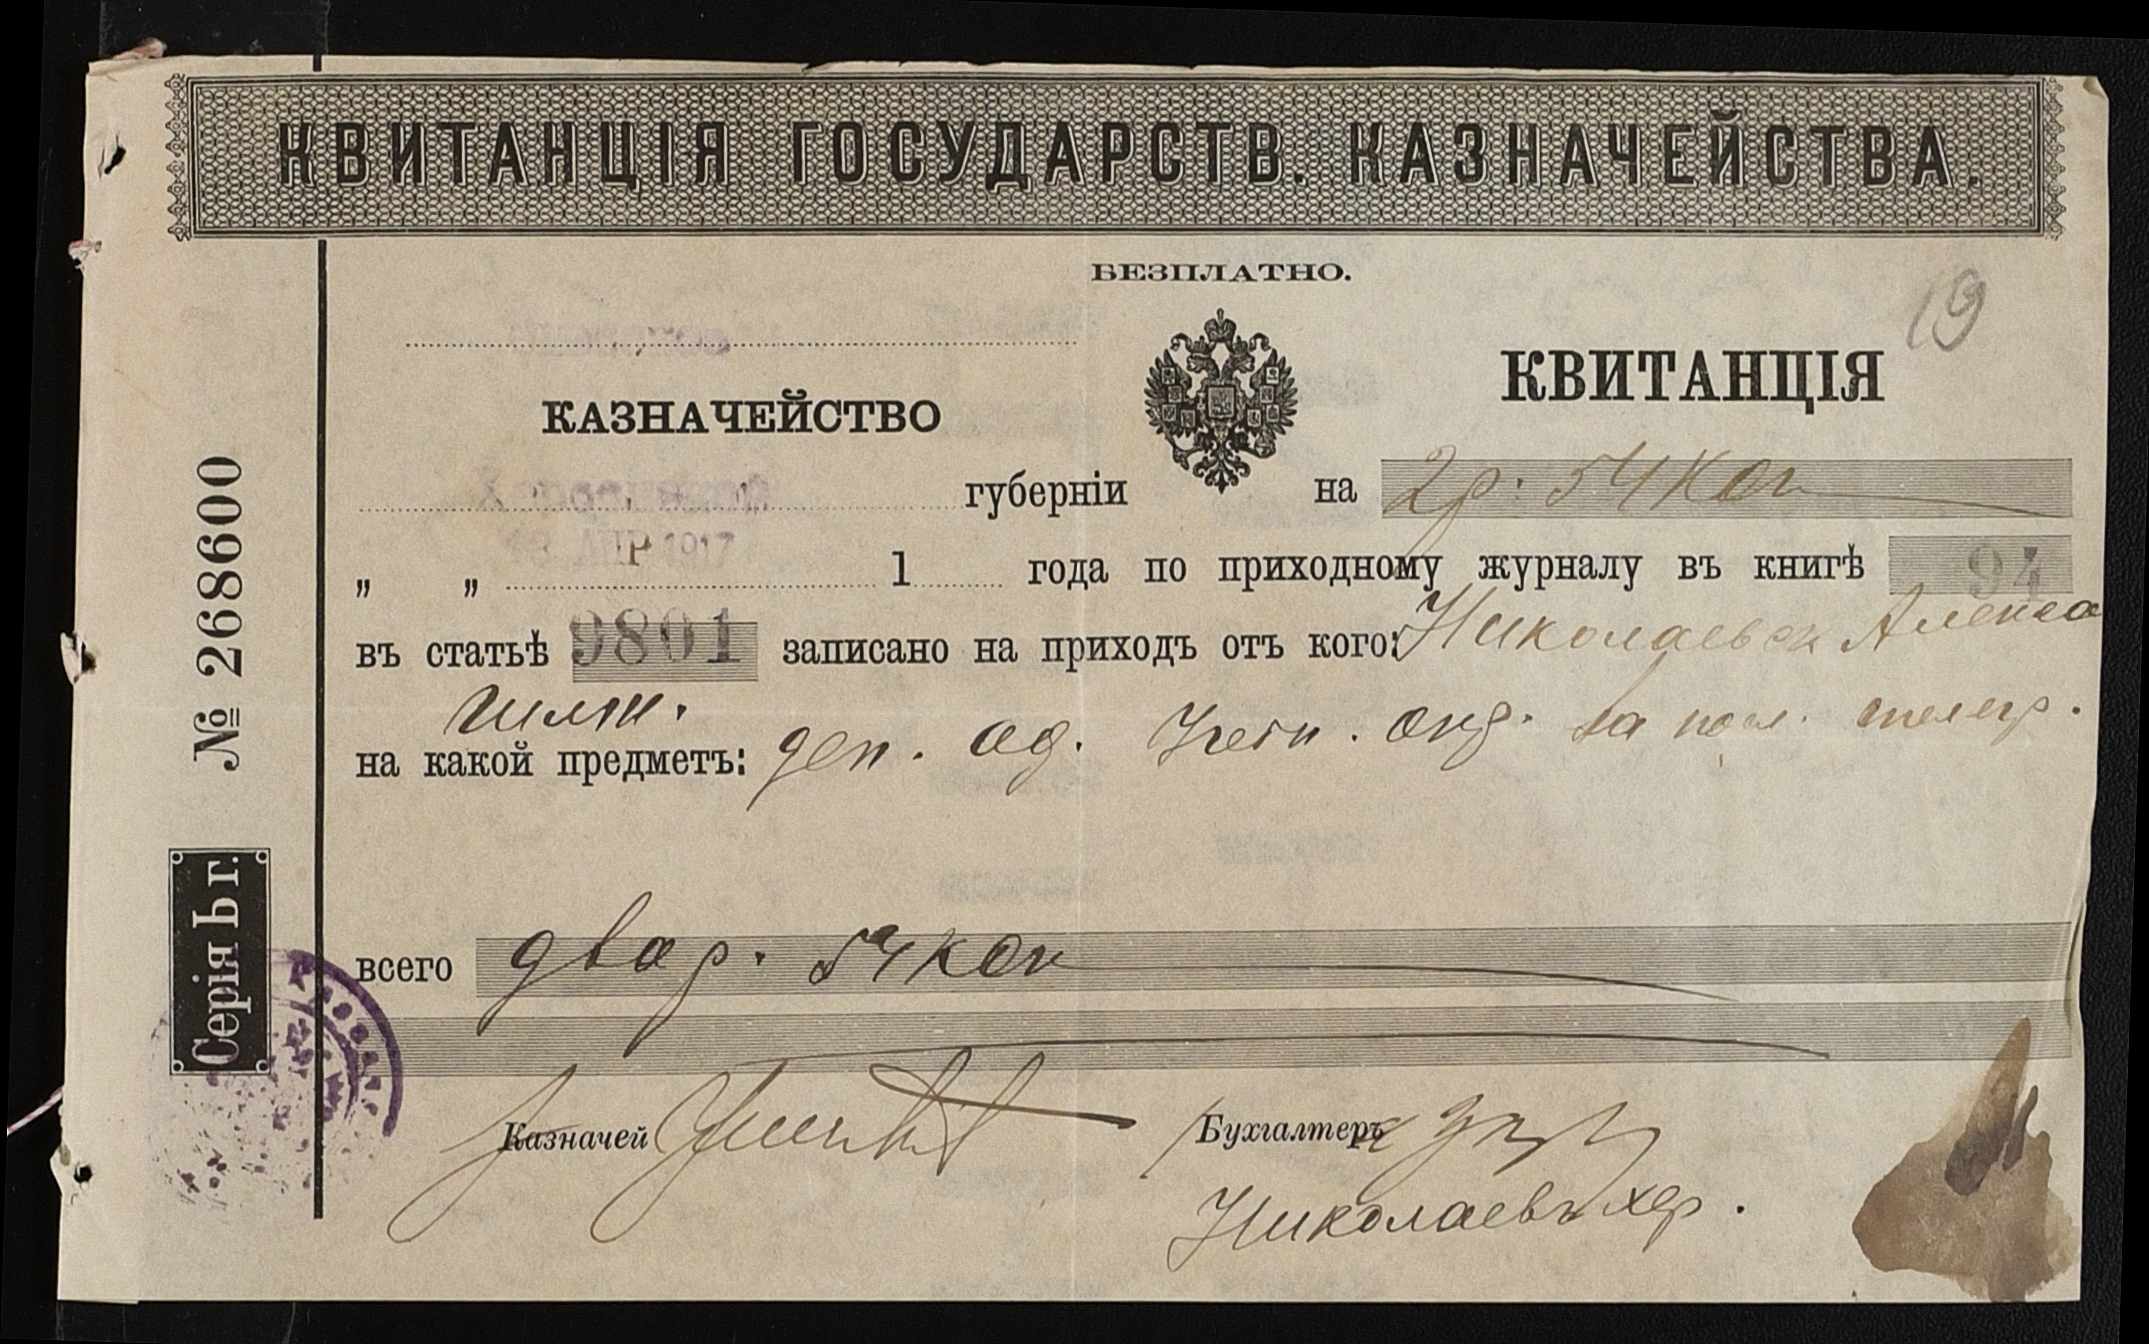 КВИТАНЦІЯ ГОСУДАРСТВ. КАЗНАЧЕЙСТВА.
БЕЗПЛАТНО.
19
КАЗНАЧЕЙСТВО
КВИТАНЦІЯ
Херсонской губерніи на 2р. 54 коп
„ „ АПР 1917 1 года по приходному журналу въ книгѣ 94
въ статьѣ 9801 записано на приходъ отъ кого: Николаевск
на какой предметъ: деп. за телегр.
всего два р. 54 коп
Казначей Бухгалтеръ
Николаевъ хер.
№ 268600
Серія Ьг.